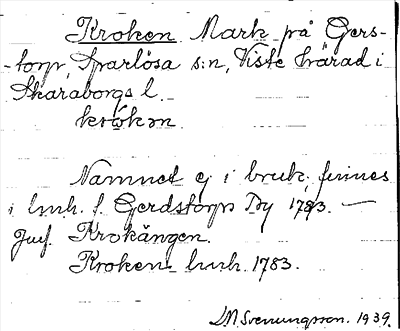 Kroken Mark på Gers-
-torp, Sparlösa s:n, Viste härad i
Skaraborgs l.
krókən
Namnet ej i bruk, finnes
i lmh. f. Gerdstorps By 1783. —
Jmf. Krokängen.
Kroken lmh. 1783.
D.N. Svenungsson. 1939.